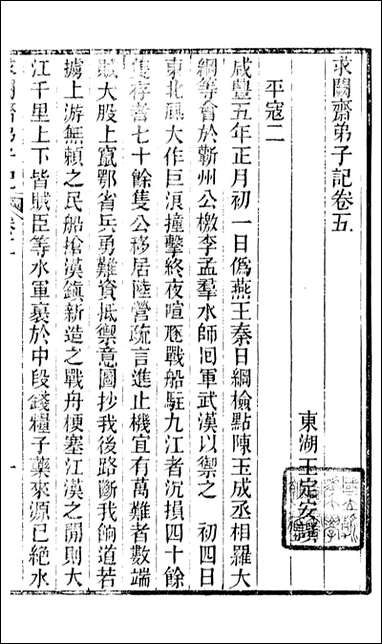 求闕齋弟子記卷五
東湖王定安撰
平寇二
咸豐五年正月初一日僞燕王秦日綱檢點陳玉成丞相羅大
綱等會於蘄州公檄李孟羣水師囘軍武漢以禦之　初四日
東北風大作巨浪撞擊終夜喧豗戰船駐九江者沉損四十餘
隻存者七十餘隻公移居陸營疏言進止機宜有萬難者數端
賊大股上竄鄂省兵勇難資抵禦意圖抄我後路斷我餉道若
擄上游無額之民船搶漢鎮新造之戰舟梗塞江漢之間則大
江千里上下皆賊臣等水軍裹於中段錢糧子藥來源已絕水
求闕齋弟子記
卷五
一